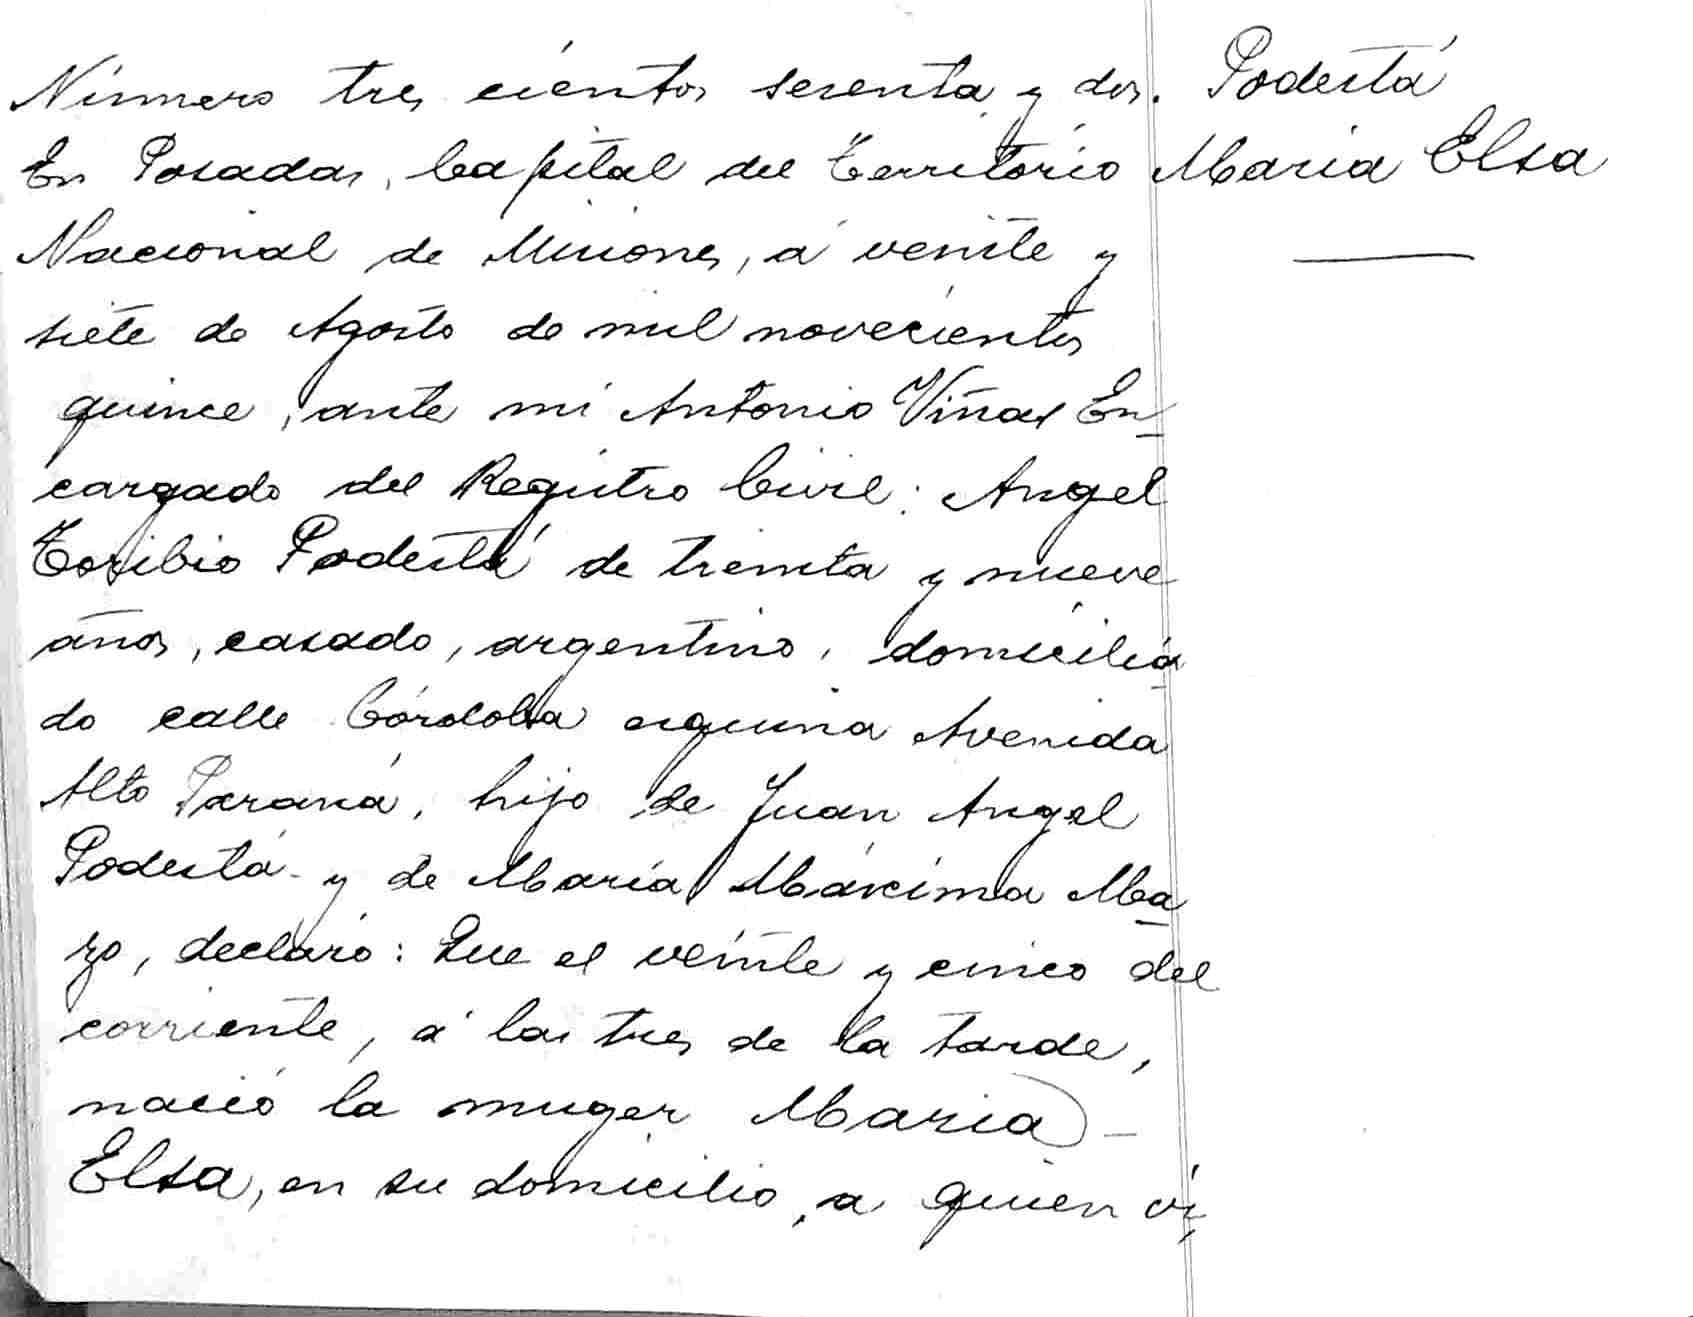 Número tres cientos sesenta y dos.
En Posadas, Capital del Territorio
Nacional de Misiones, á veinte y
siete de Agosto de mil novecientos
quince, ante mi Antonio Viñas En-
cargado del Registro Civil: Angel
Toribio Podestá de treinta y nueve
años, casado, argentino, domicilia-
do calle Córdoba esquina Avenida
Alto Paraná, hijo de Juan Angel
Podestá y de María Máxima Ma-
zo, declaró: Que el veinte y cinco del
corriente, á las tres de la tarde,
nació la muger Maria
Elsa, en su domicilio, a quien ví,
Podestá
Maria Elsa